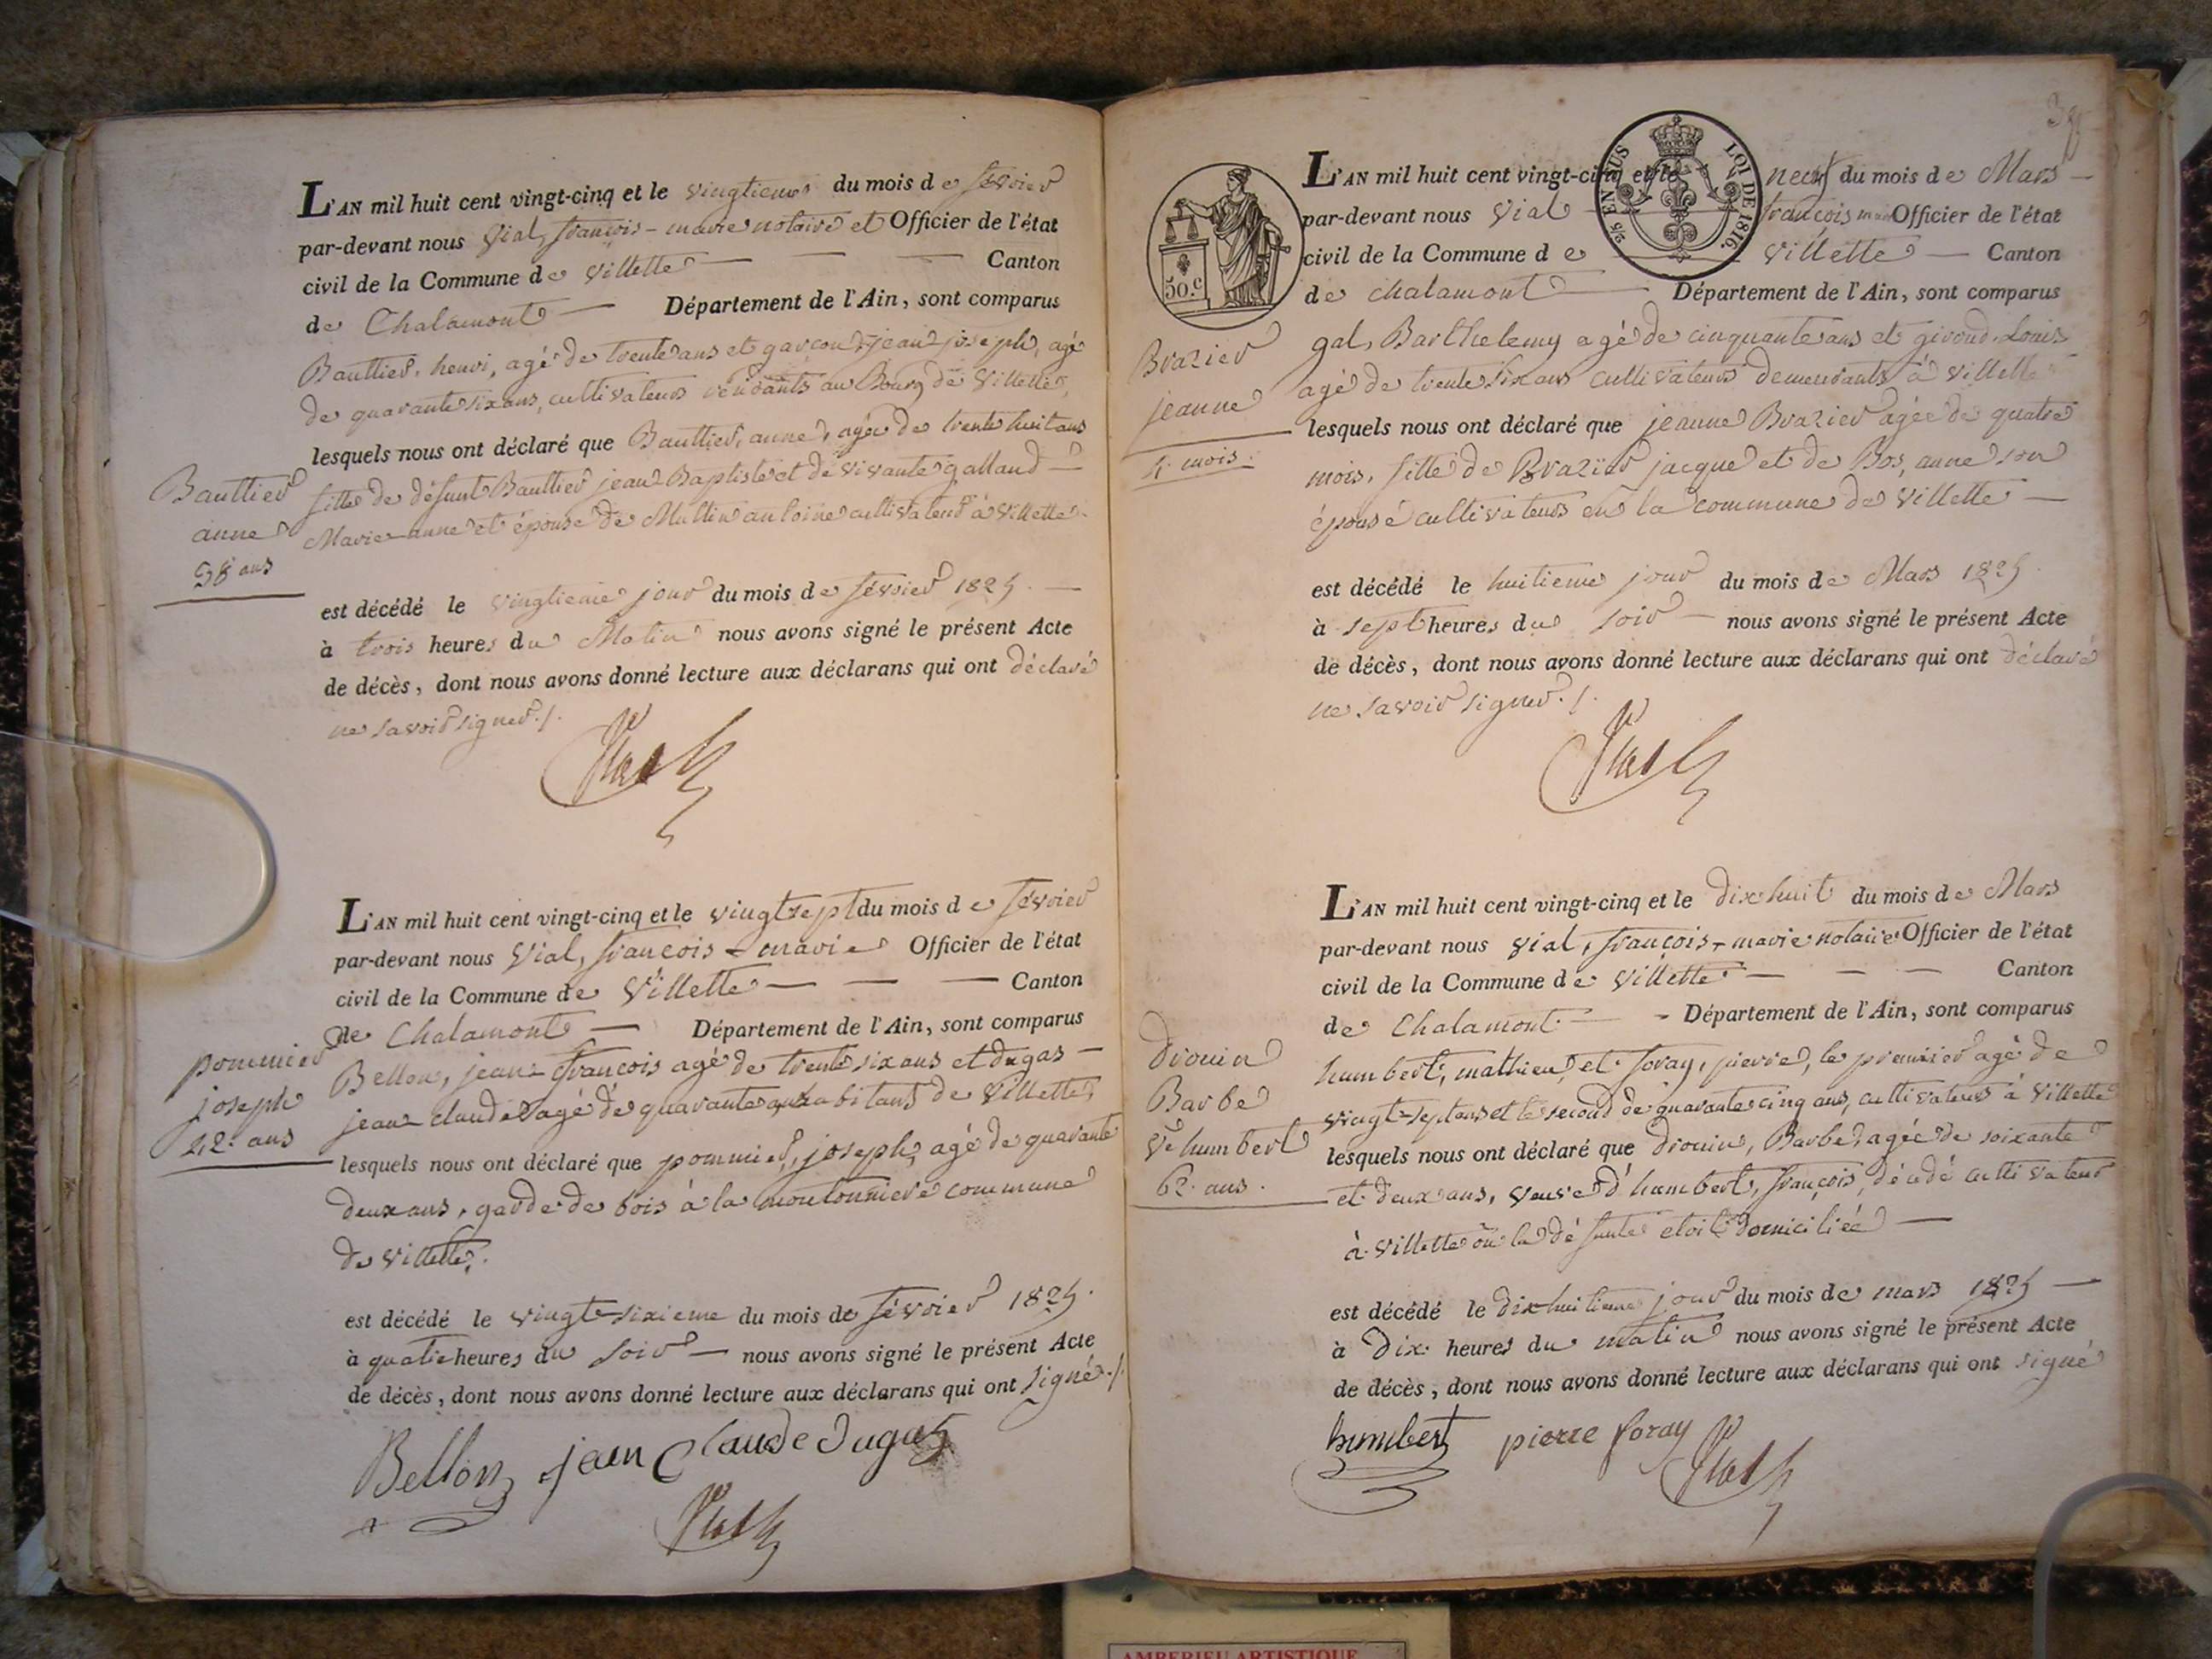 L'AN mil huit cent vingt-cinq et le vingtieme du mois de février
par-devant nous Vial, françois-marie notaire et Officier de l'état
civil de la Commune de Villette — — — Canton
de Chalamont — Département de l'Ain, sont comparus
Bauttier, henri, agé de trente ans et garçon, jean joseph, agé
de quarante six ans, cultivateurs résidants au Bourg de Villette,
lesquels nous ont déclaré que Bauttier, anne, agée de trente huit ans
Bauttier
anne
38 ans
fille de défunt Bauttier jean Baptiste et de vivante galland —
Marie-anne et épouse de Multin antoine cultivateur à Villette.
est décédé le vingtieme jour du mois de février 1825. —
à trois heures du Matin nous avons signé le présent Acte
de décès, dont nous avons donné lecture aux déclarans qui ont déclaré
ne savoir signer./.
Vial
L'AN mil huit cent vingt-cinq et le vingt sept du mois de février
par-devant nous Vial, françois-marie Officier de l'état
civil de la Commune de Villette — — — Canton
de Chalamont — Département de l'Ain, sont comparus
pommier
joseph
42. ans
Bellon, jean françois agé de trente six ans et dugas —
jean claude agé de quarante habitants de Villette,
lesquels nous ont déclaré que pommier, joseph, agé de quarante
deux ans, garde de bois à la moutonniere commune
de Villette.
est décédé le vingt-sixieme du mois de février 1825.
à quatre heures du soir — nous avons signé le présent Acte
de décès, dont nous avons donné lecture aux déclarans qui ont signé./.
Bellon jean Claude dugas
Vial
39
50.c
2/5 EN SUS LOI DE 1816.
L'AN mil huit cent vingt-cinq et le neuf du mois de Mars —
par-devant nous Vial françois marie Officier de l'état
civil de la Commune de Villette — Canton
de chalamont — Département de l'Ain, sont comparus
Brazier
jeanne
4. mois.
gal, Barthelemy agé de cinquante ans et giroud, Louis
agé de trente six ans cultivateurs demeurants à Villette
lesquels nous ont déclaré que jeanne Brazier agée de quatre
mois, fille de Brazier jacque et de Bos, anne son
épouse cultivateurs en la commune de Villette —
est décédé le huitieme jour du mois de Mars 1825.
à sept heures du soir — nous avons signé le présent Acte
de décès, dont nous avons donné lecture aux déclarans qui ont déclaré
ne savoir signer./.
Vial
L'AN mil huit cent vingt-cinq et le dix huit du mois de Mars
par-devant nous Vial, françois-marie notaire Officier de l'état
civil de la Commune de Villette — — — Canton
de Chalamont. — - Département de l'Ain, sont comparus
Drouin
Barbe
Ve humbert
62. ans.
humbert, mathieu, et foray, pierre, le premier agé de
vingt-sept ans et le second de quarante cinq ans, cultivateurs à Villette
lesquels nous ont déclaré que Drouin, Barbe, agée de soixante
et deux ans, veuve d'humbert, françois, décédé cultivateur
à Villette ou la défunte etoit domiciliée —
est décédé le dix huitieme jour du mois de mars 1825 —
à Dix heures du matin nous avons signé le présent Acte
de décès, dont nous avons donné lecture aux déclarans qui ont signé
humbert pierre foray
Vial
AMBERIEU ARTISTIQUE